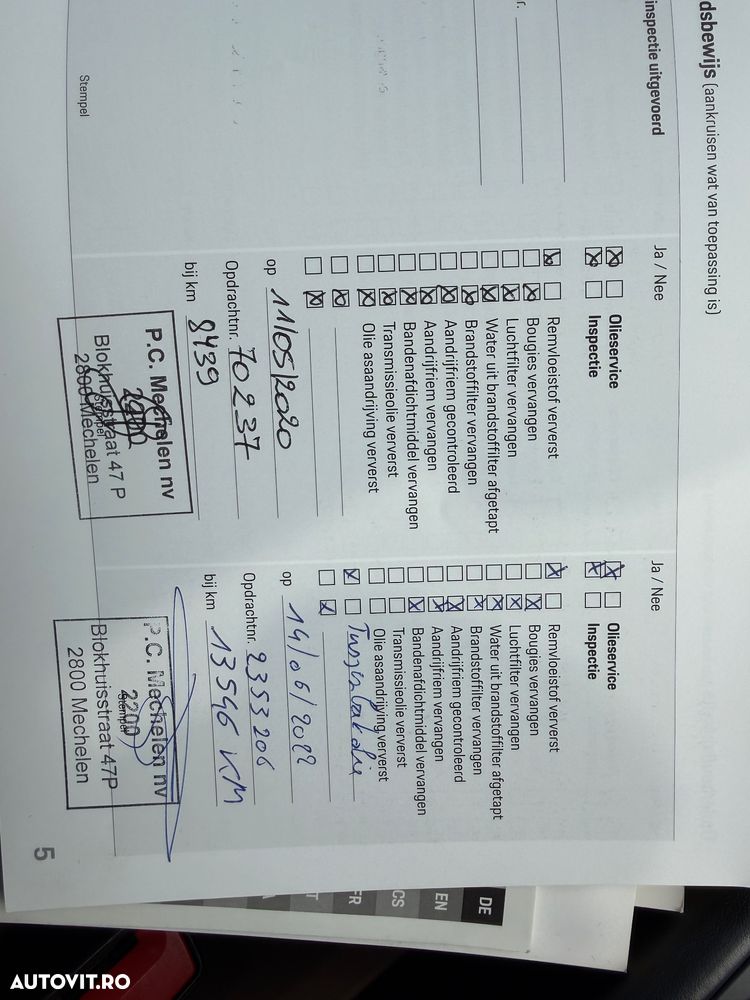 dsbewijs (aankruisen wat van toepassing is)
inspectie uitgevoerd
r.
Stempel
Ja / Nee
Olieservice
Inspectie
Remvloeistof ververst
Bougies vervangen
Luchtfilter vervangen
Water uit brandstoffilter afgetapt
Brandstoffilter vervangen
Aandrijfriem gecontroleerd
Aandrijfriem vervangen
Bandenafdichtmiddel vervangen
Transmissieolie ververst
Olie asaandrijving ververst
op 11/05/2020
Opdrachtnr. 70237
bij km 8439
P.C. Mechelen nv
2200
Stempel
Blokhuisstraat 47 P
2800 Mechelen
Ja / Nee
Olieservice
Inspectie
Remvloeistof ververst
Bougies vervangen
Luchtfilter vervangen
Water uit brandstoffilter afgetapt
Brandstoffilter vervangen
Aandrijfriem gecontroleerd
Aandrijfriem vervangen
Bandenafdichtmiddel vervangen
Transmissieolie ververst
Olie asaandrijving ververst
op 14/06/2022
Opdrachtnr. 2353206
bij km 13546 KM
P.C. Mechelen nv
2200
Stempel
Blokhuisstraat 47P
2800 Mechelen
5
DE
EN
CS
FR
AUTOVIT.RO